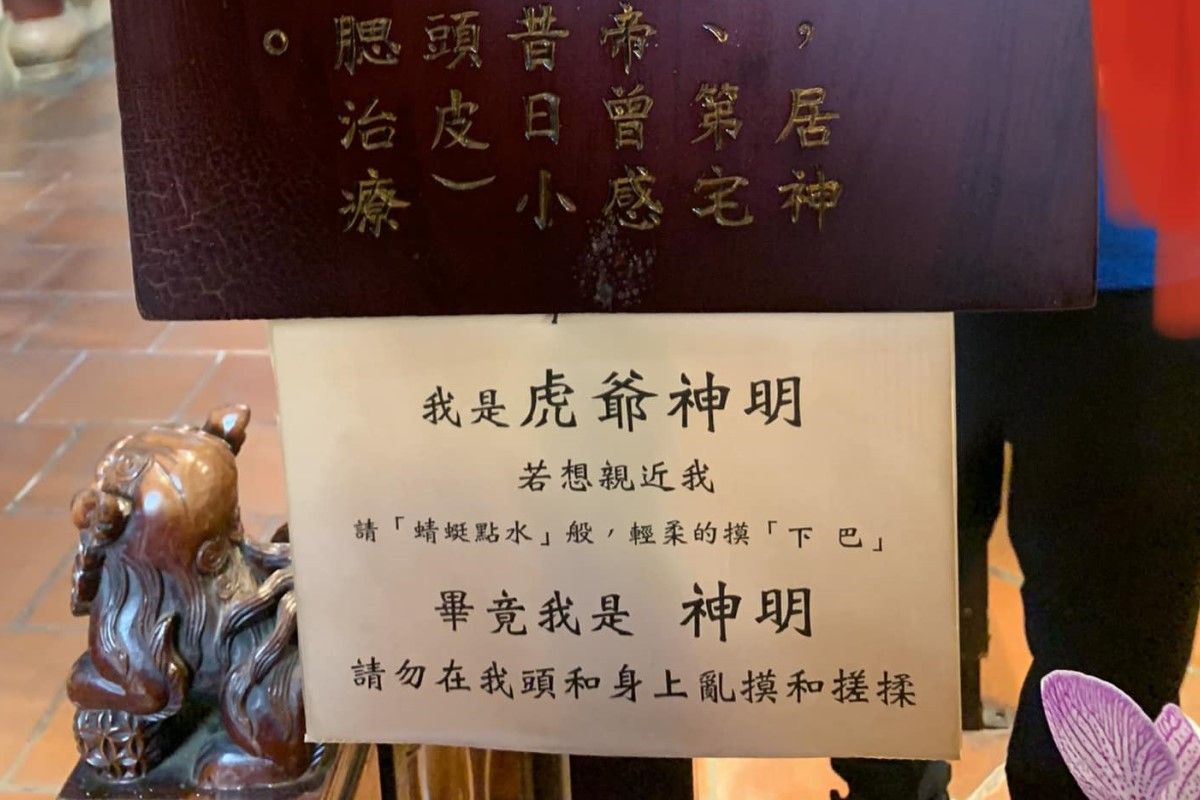 ，居神
、第宅
帝曾感
昔日小
頭皮）
腮治療
。
我是虎爺神明
若想親近我
請「蜻蜓點水」般，輕柔的摸「下 巴」
畢竟我是 神明
請勿在我頭和身上亂摸和搓揉